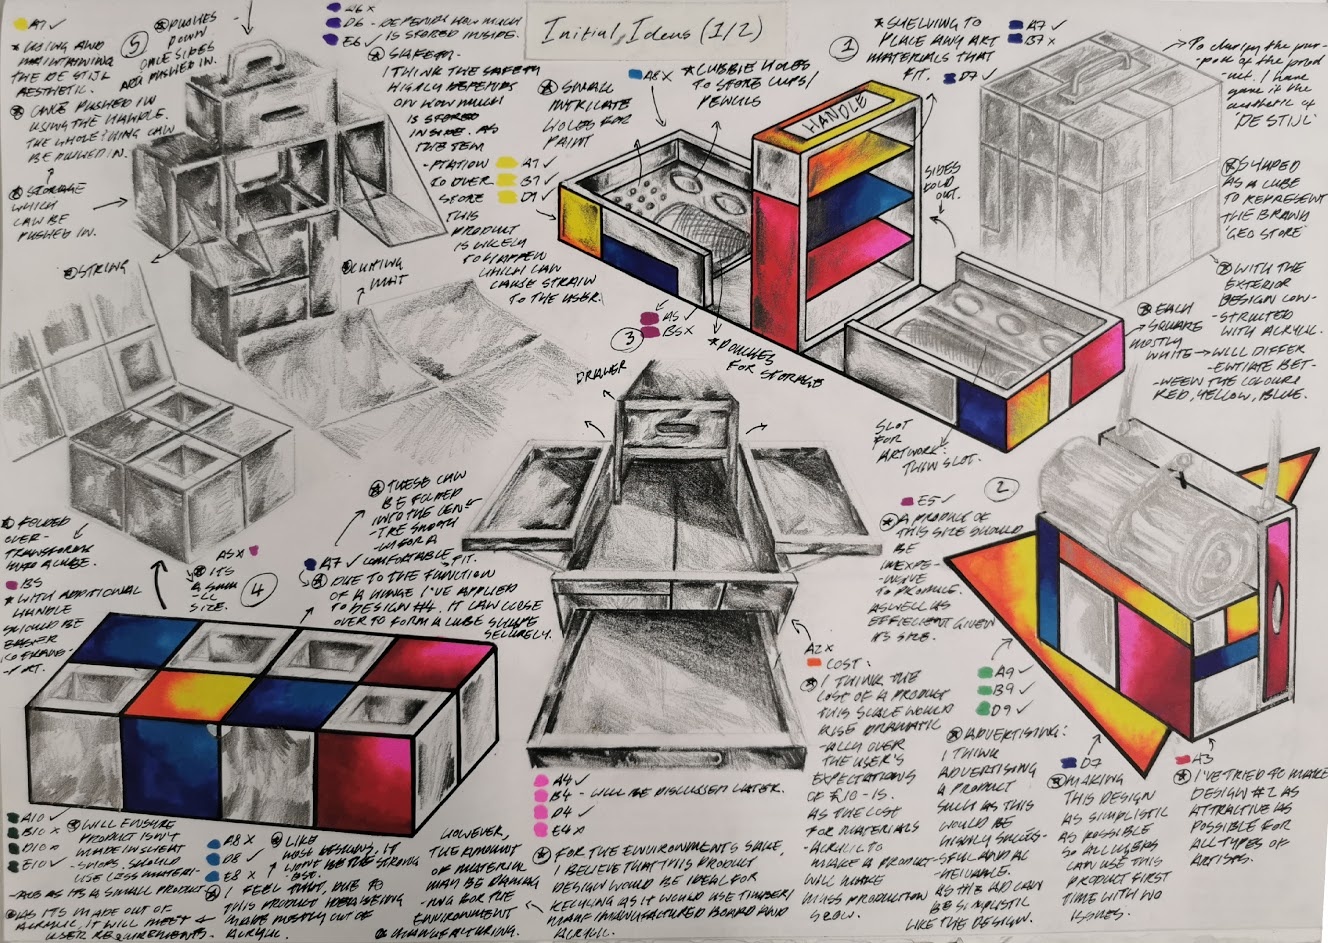 Initial Ideas (1/2)
A7 ✓
* USING AND
MAINTAINING
THE DE STIJL
AESTHETIC.
ONCE PUSHED IN
USING THE HANDLE.
THE WHOLE THING CAN
BE PUSHED IN.
STORAGE
WHICH
CAN BE
PUSHED IN.
STRING
5
PUSHES
DOWN
ONCE SIDES
ARE PUSHED IN.
CUTTING
MAT
D6 - DEPENDS HOW MUCH
IS STORED INSIDE.
E6 ✓
SAFETY -
I THINK THE SAFETY
HIGHLY DEPENDS
ON HOW MUCH
IS STORED
INSIDE. AS
THE TEM
-PTATION
TO OVER
STORE
THIS
PRODUCT
IS LIKELY
TO HAPPEN
WHICH CAN
CAUSE STRAIN
TO THE USER.
A7 ✓
B7 ✓
D7 ✓
SMALL
INTRICATE
HOLES FOR
PAINT
A8 X
* CUBBIE HOLES
TO STORE CUPS/
PENCILS
1
* SHELVING TO
PLACE ANY ART
MATERIALS THAT
FIT.
A7 ✓
B7 X
D7 ✓
HANDLE
SIDES
FOLD
OUT.
* POUCHES
FOR STORAGE
SLOT
FOR
ARTWORK.
THIN SLOT.
To clarify the pur-
-pose of the prod
-uct. I have
gave it the
aesthetic of
'DE STIJL'
SHAPED
AS A CUBE
TO REPRESENT
THE BRAND
'GEO STORE'
WITH THE
EXTERIOR
DESIGN CON-
-STRUCTED
WITH ACRYLIC.
EACH
SQUARE
MOSTLY
WHITE → WILL DIFFER
-ENTIATE BET-
-WEEN THE COLOURS
RED, YELLOW, BLUE.
3
A5 ✓
B5 X
DRAWER
THESE CAN
BE FOLDED
INTO THE CEN-
-TRE SMOOTH
-LY FOR A
COMFORTABLE FIT.
FOLDED
OVER-
TRANSFORMS
INTO A CUBE.
B5
* WITH ADDITIONAL
HANDLE
SHOULD BE
EASIER
TO TRANSP-
-ORT.
A5 X
ITS
A SMA
-LL
SIZE.
4
A7 ✓
DUE TO THE FUNCTION
OF A HINGE I'VE APPLIED
TO DESIGN #4. IT CAN CLOSE
OVER TO FORM A CUBE SHAPE
SECURELY.
2
E5 ✓
A PRODUCT OF
THIS SIZE SHOULD
BE
INEXPE-
-NSIVE
TO PRODUCE.
ASWELL AS
EFFICIENT GIVEN
ITS SIZE.
A9 ✓
B9 ✓
D9 ✓
ADVERTISING:
I THINK
ADVERTISING
A PRODUCT
SUCH AS THIS
WOULD BE
HIGHLY SUCCES-
-SFUL AND AC
-HEIVABLE.
AS THE AD CAN
BE SIMPLISTIC
LIKE THE DESIGN.
D7 ✓
MAKING
THIS DESIGN
AS SIMPLISTIC
AS POSSIBLE
SO ALL USERS
CAN USE THIS
PRODUCT FIRST
TIME WITH NO
ISSUES.
A3
I'VE TRIED TO MAKE
DESIGN #2 AS
ATTRACTIVE AS
POSSIBLE FOR
ALL TYPES OF
ARTISTS.
A2 X
COST:
I THINK THE
COST OF A PRODUCT
THIS SCALE WOULD
RISE DRAMATIC
-ALLY OVER
THE USER'S
EXPECTATIONS
OF £10-15.
AS THE COST
FOR MATERIALS
- ACRYLIC TO
MAKE A PRODUCT
WILL MAKE
MASS PRODUCTION
SLOW.
A4 ✓
B4 - WILL BE DISCUSSED LATER.
D4 ✓
E4 X
FOR THE ENVIRONMENTS SAKE,
I BELIEVE THAT THIS PRODUCT
DESIGN WOULD BE IDEAL FOR
RECYCLING AS IT WOULD USE TIMBER/
MANUFACTURED BOARD AND
ACRYLIC.
HOWEVER,
THE AMOUNT
OF MATERIAL
MAY BE DAMAG
-ING FOR THE
ENVIRONMENT
MANUFACTURING.
A10 ✓
B10 X
D10 X
E10 ✓
WILL ENSURE
PRODUCT ISN'T
MADE IN SWEAT
SHOPS. SHOULD
USE LESS MATERI-
-ALS AS ITS A SMALL PRODUCT
AS ITS MADE OUT OF
ACRYLIC, IT WILL MEET
USER REQUIREMENTS.
A8 X
D8 ✓
E8 X
LIKE
MOST DESIGNS, IT
WON'T BE THE STRONG
EST.
I FEEL THAT, DUE TO
THIS PRODUCT IDEA BEING
MADE MOSTLY OUT OF
ACRYLIC.